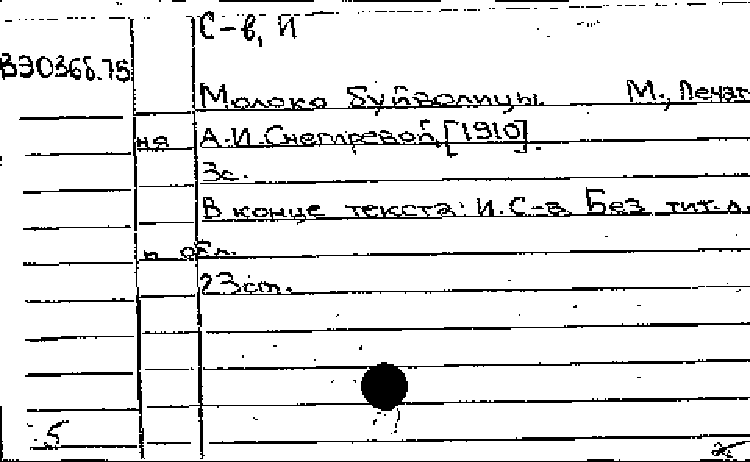 С-в, И
В9036б.75
Молоко буйволицы. М., Печат
ня А.И.Снегиревой, [1910].
3с.
В конце текста: И. С-в. Без тит.л.
и обл.
23см.
5